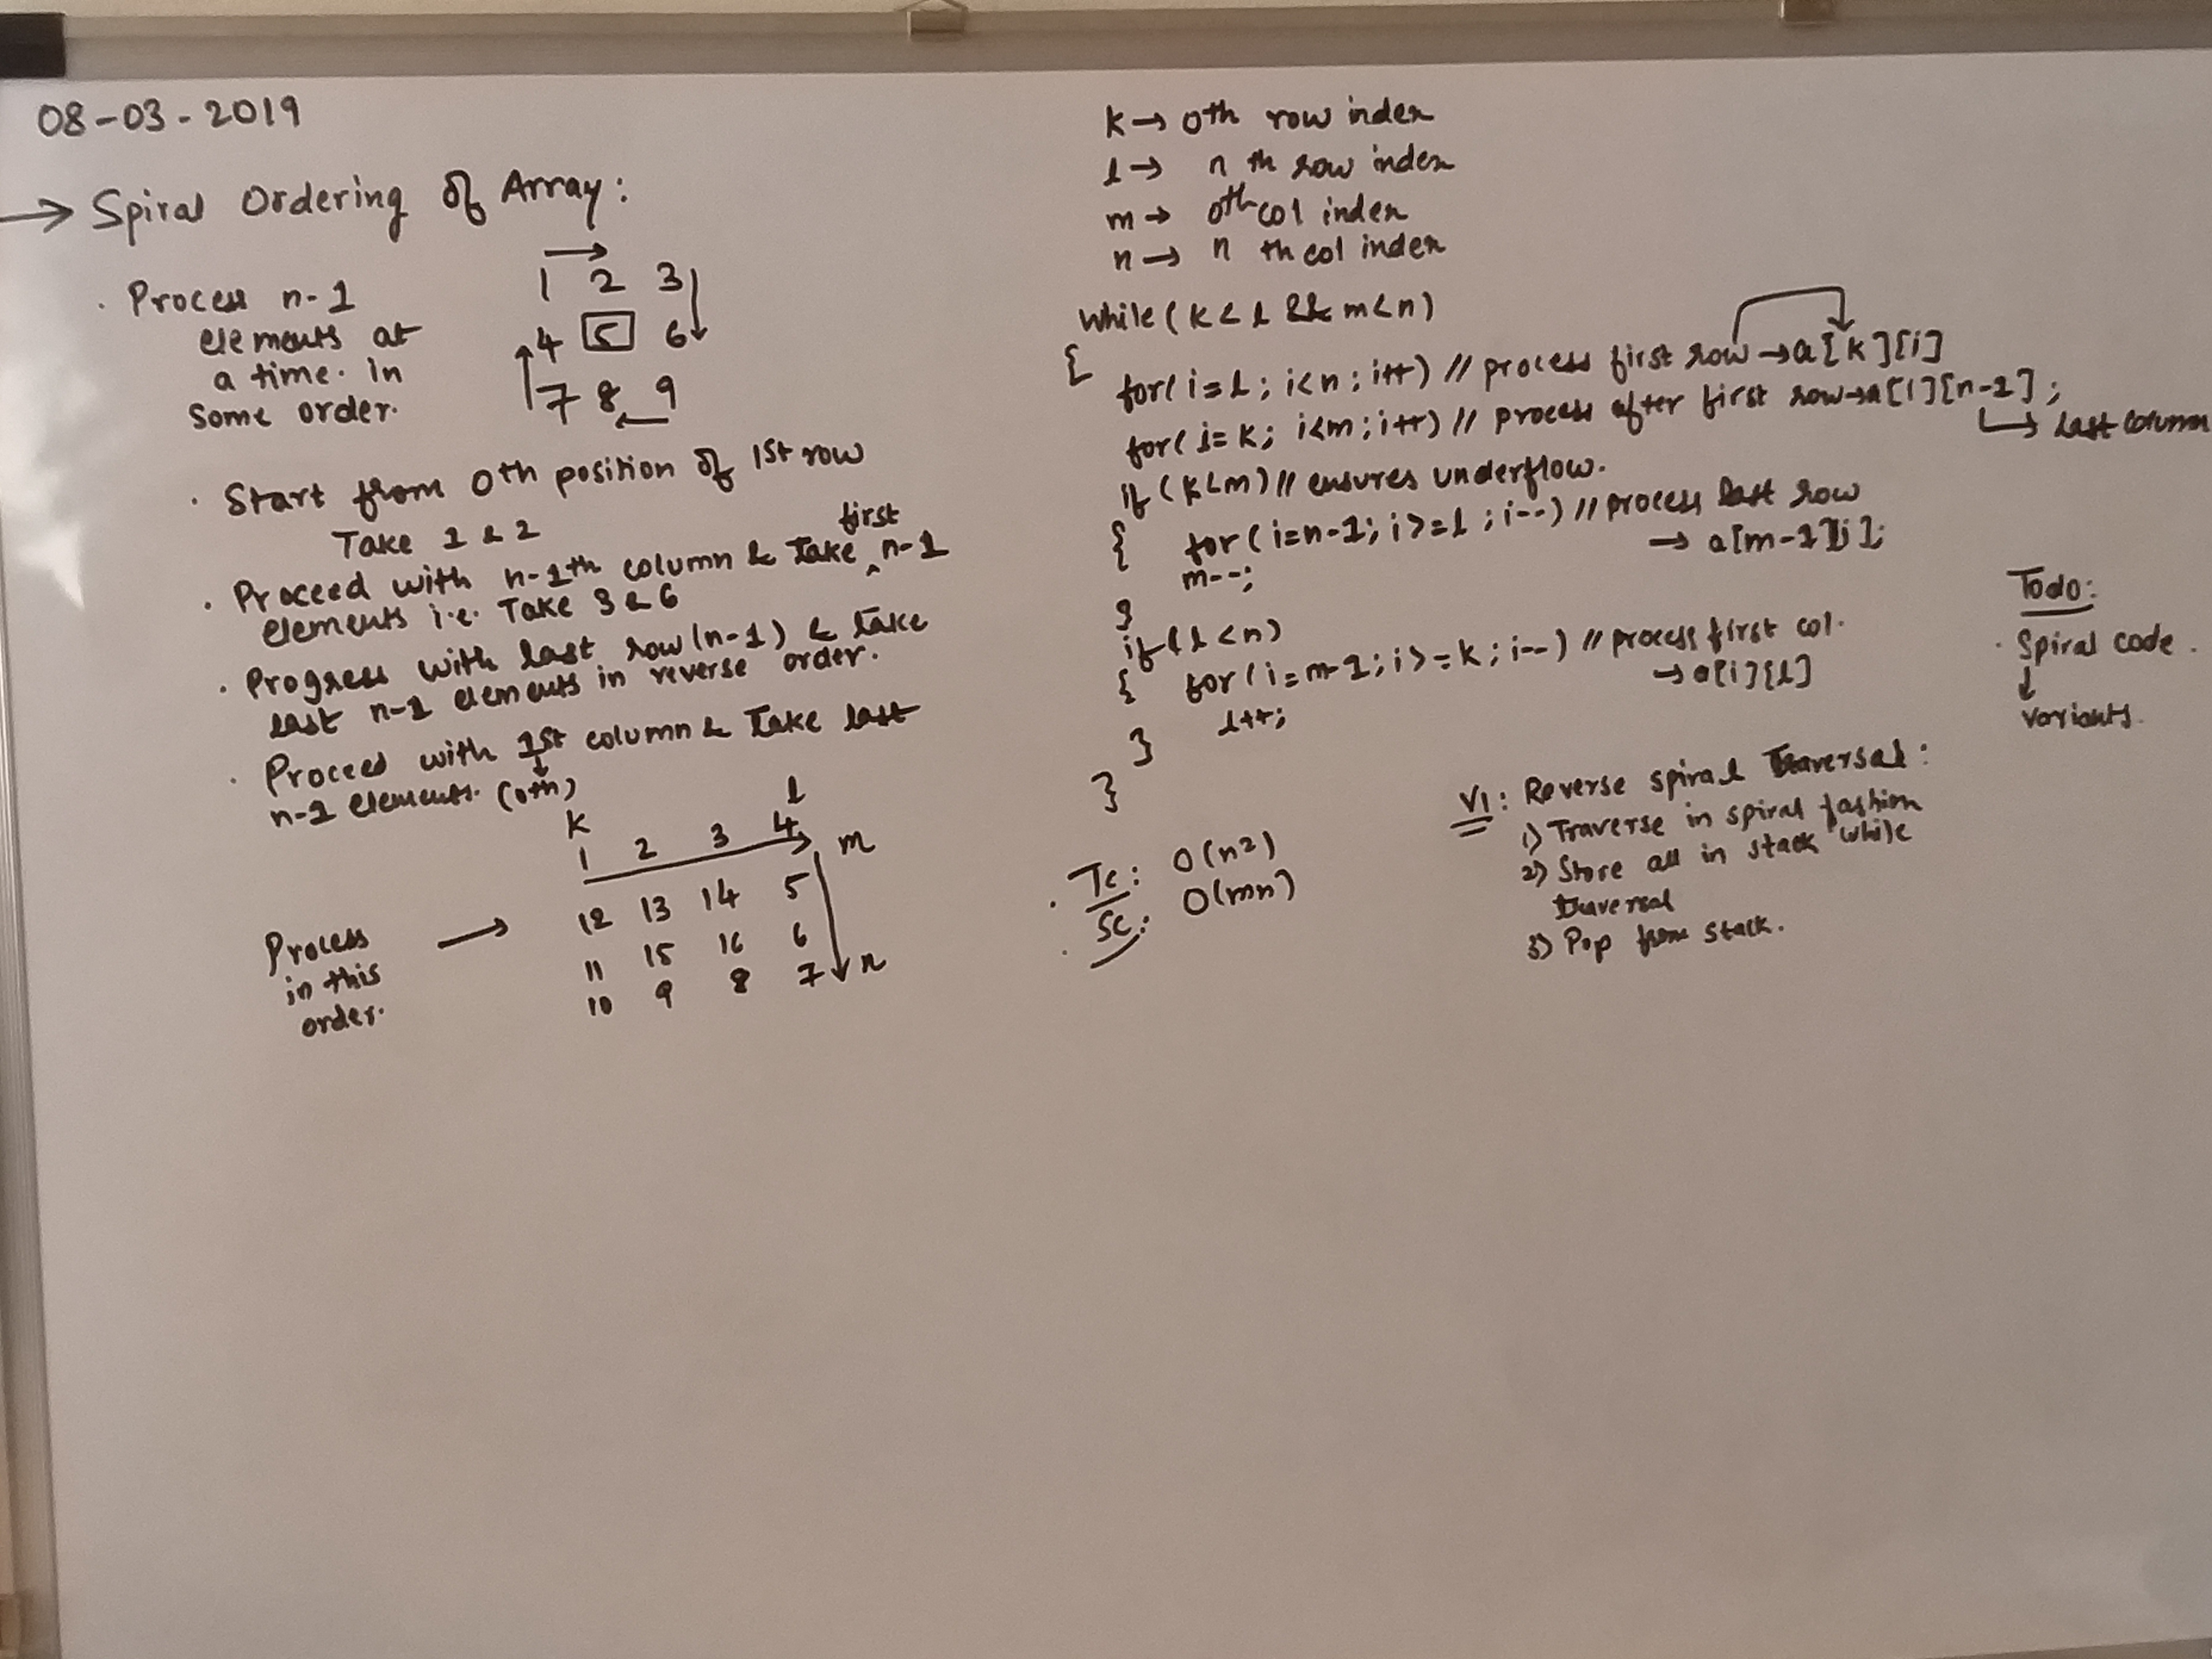 08-03-2019
→ Spiral Ordering of Array:
· Process n-1
elements at
a time. In
Some order.
1 2 3
4 5 6
7 8 9
· Start from 0th position of 1st row
Take 1 & 2
· Proceed with n-1th column & Take first n-1
elements i.e. Take 3 & 6
· Progress with last row (n-1) & take
last n-1 elements in reverse order.
· Proceed with 1st column & Take last
n-1 elements. (0th)
k l
1 2 3 4 m
12 13 14 5
11 15 16 6
10 9 8 7 n
Process
in this
order. →
k → 0th row index
l → n th row index
m → 0th col index
n → n th col index
while (k < l && m < n)
{
for(i=l; i<n; i++) // process first row → a[k][i]
for(i=k; i<m; i++) // process after first row → a[i][n-1];
↳ Last column
if (k<m) // ensures underflow.
{ for(i=n-1; i>=l; i--) // process last row
→ a[m-1][i];
m--;
}
if(l<n)
{ for(i=m-1; i>=k; i--) // process first col.
→ a[i][l]
l++;
}
}
· Tc: O(n²)
· Sc: O(mn)
Todo:
· Spiral code.
↓
variants.
V1: Reverse spiral Traversal:
1) Traverse in spiral fashion
2) Store all in stack while
traversal
3) Pop from stack.